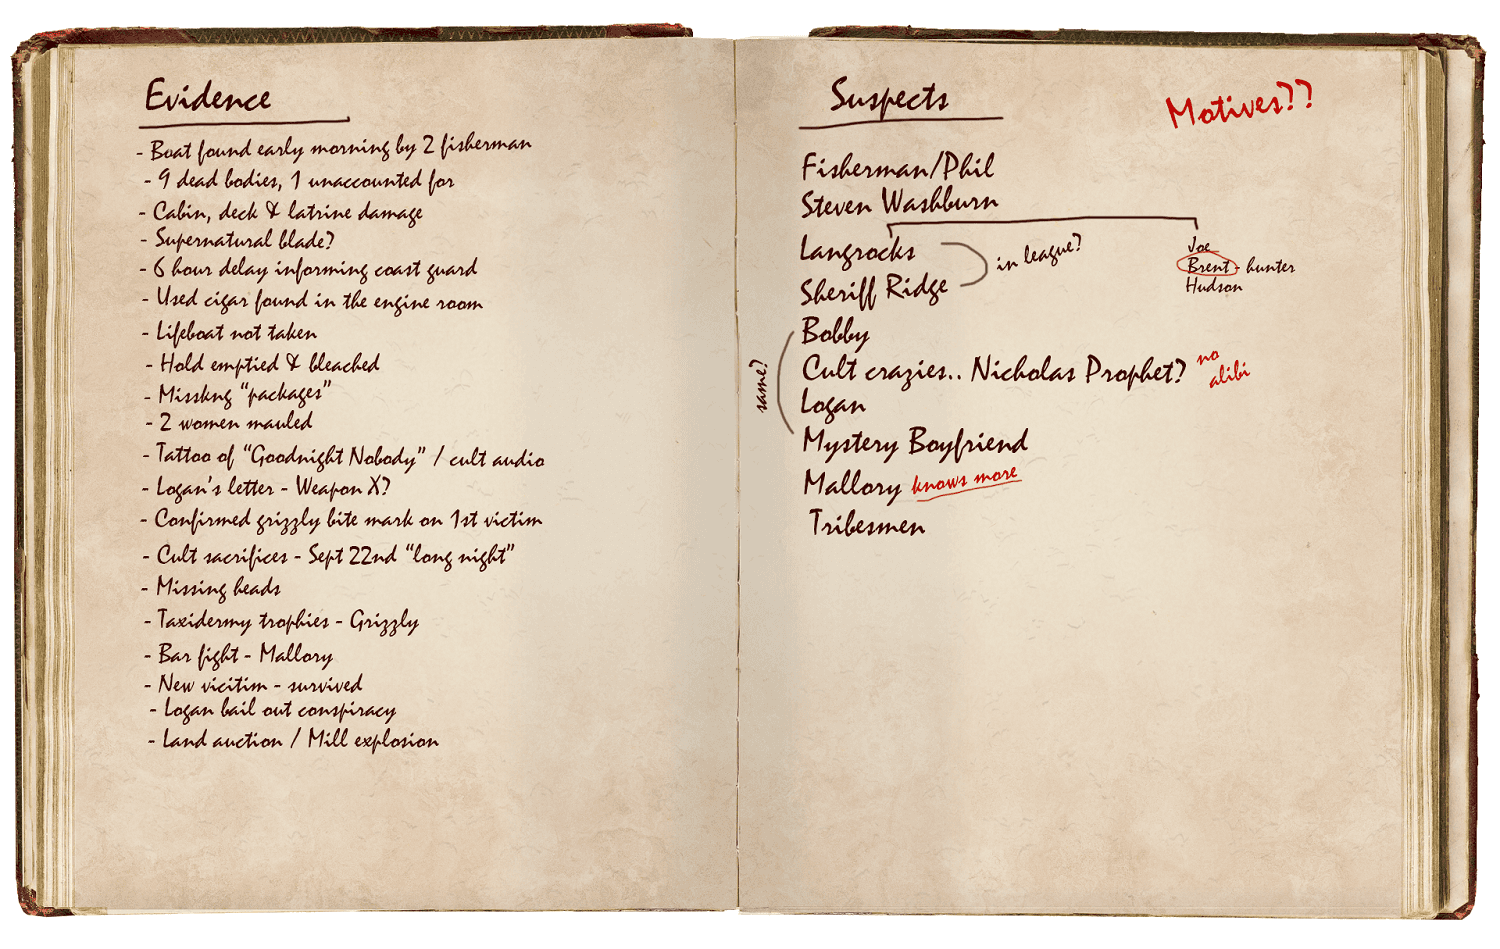 Evidence
- Boat found early morning by 2 fisherman
- 9 dead bodies, 1 unaccounted for
- Cabin, deck & latrine damage
- Supernatural blade?
- 6 hour delay informing coast guard
- Used cigar found in the engine room
- Lifeboat not taken
- Hold emptied & bleached
- Misskng "packages"
- 2 women mauled
- Tattoo of "Goodnight Nobody" / cult audio
- Logan's letter - Weapon X?
- Confirmed grizzly bite mark on 1st victim
- Cult sacrifices - Sept 22nd "long night"
- Missing heads
- Taxidermy trophies - Grizzly
- Bar fight - Mallory
- New vicitim - survived
- Logan bail out conspiracy
- Land auction / Mill explosion
Suspects
Motives??
Fisherman/Phil
Steven Washburn
Langrocks
Sheriff Ridge
in league?
Joe
Brent - hunter
Hudson
Bobby
Cult crazies.. Nicholas Prophet?
no
alibi
Logan
same?
Mystery Boyfriend
Mallory knows more
Tribesmen